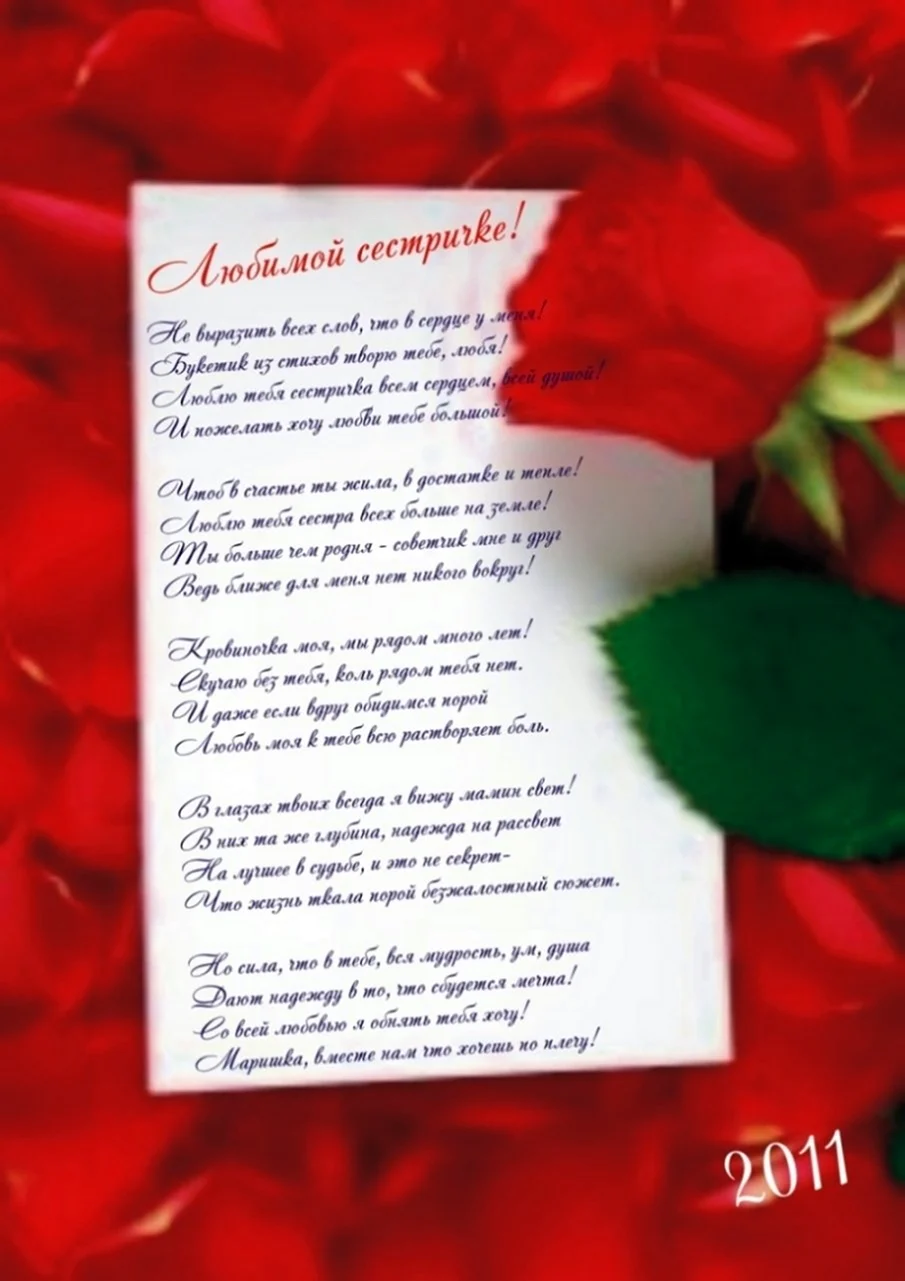 Любимой сестричке!
Не выразить всех слов, что в сердце у меня!
Букетик из стихов творю тебе, любя!
Люблю тебя сестричка всем сердцем, всей душой!
И пожелать хочу любви тебе большой!
Чтоб в счастье ты жила, в достатке и тепле!
Люблю тебя сестра всех больше на земле!
Ты больше чем родня - советчик мне и друг
Ведь ближе для меня нет никого вокруг!
Кровиночка моя, мы рядом много лет!
Скучаю без тебя, коль рядом тебя нет.
И даже если вдруг обидимся порой
Любовь моя к тебе всю растворяет боль.
В глазах твоих всегда я вижу мамин свет!
В них та же глубина, надежда на рассвет
На лучшее в судьбе, и это не секрет-
Что жизнь ткала порой безжалостный сюжет.
Но сила, что в тебе, вся мудрость, ум, душа
Дают надежду в то, что сбудется мечта!
Со всей любовью я обнять тебя хочу!
Маришка, вместе нам что хочешь по плечу!
2011